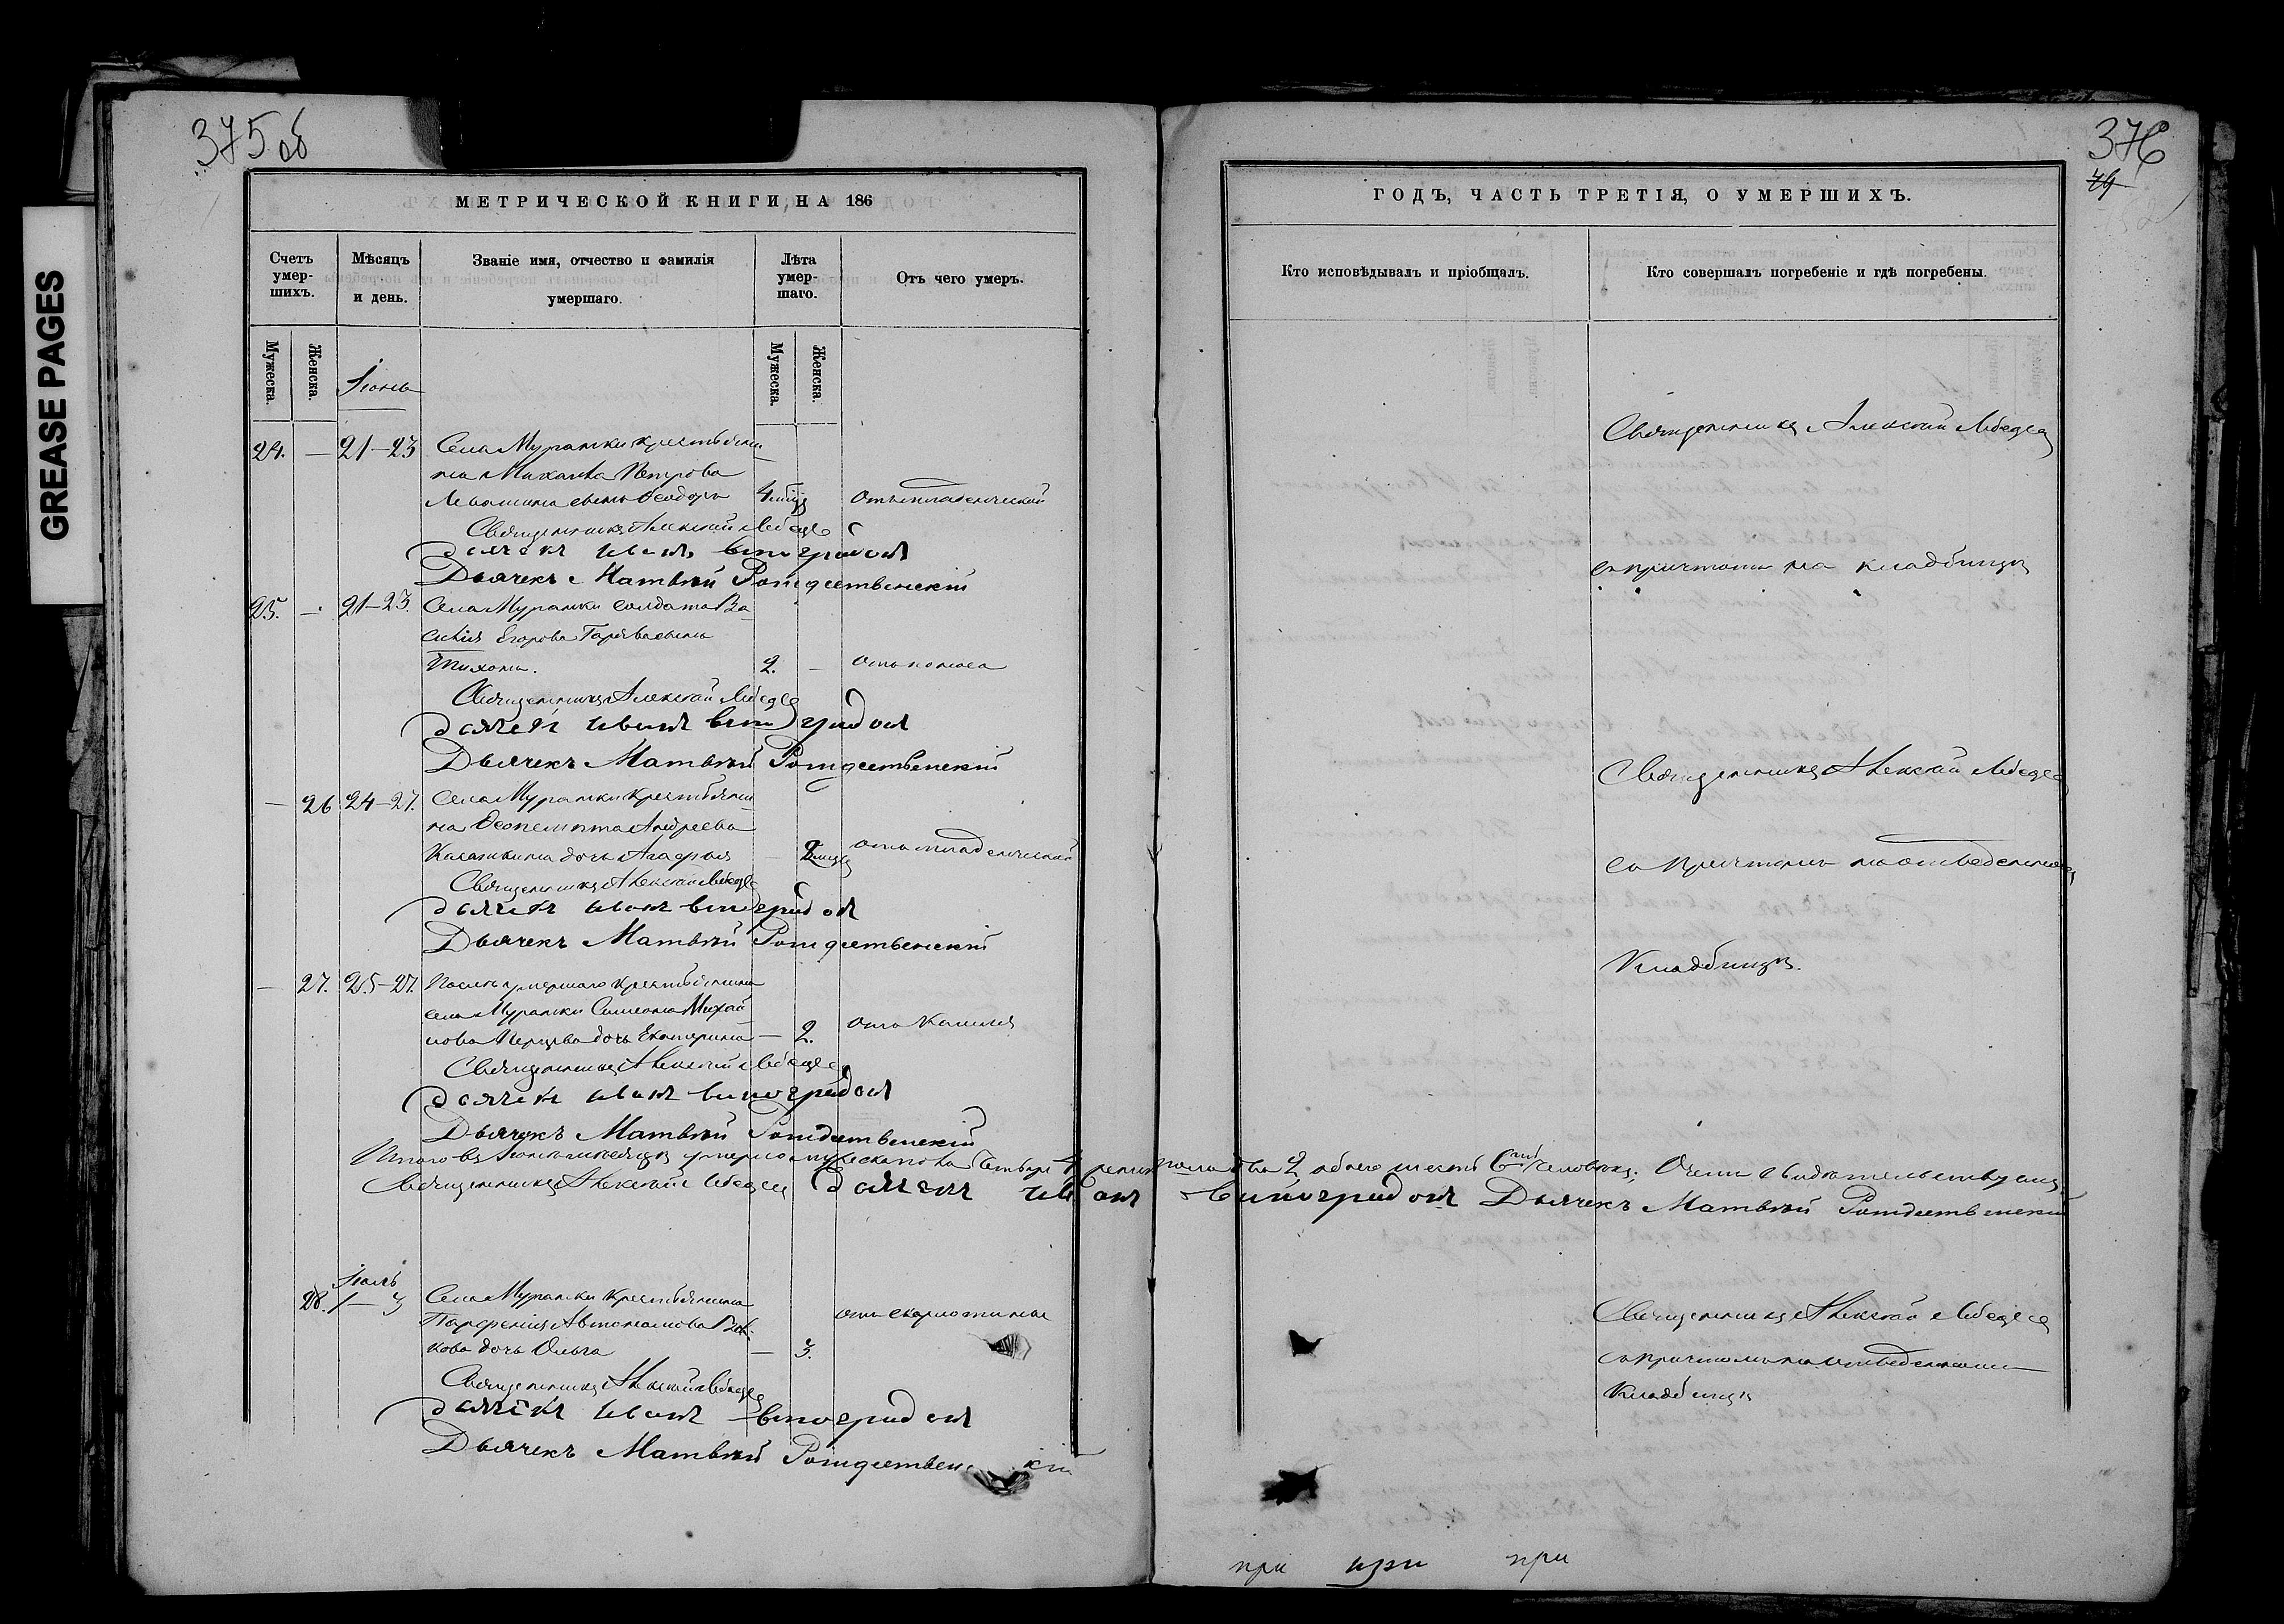 GREASE PAGES
375 об
МЕТРИЧЕСКОЙ КНИГИ, НА 186
Счетъ умер-шихъ.
Мѣсяцъ и день.
Званіе имя, отчество и фамилія умершаго.
Лѣта умер-шаго.
Отъ чего умеръ.
Мужеска.
Женска.
Мужеска.
Женска.
Іюнь
24. — 21–23 Села Муранки крестьяни
на Михаила Петрова
сынъ Ѳеодоръ 4 Отъ младенческой
Священникъ Алексій Лебедев
дьячекъ иванъ виноградовъ
Дьячекъ Матвѣй Рождественскій
25. — 21–23. Села Муранки солдата Ва
силія Егорова сынъ
Тихонъ. 2. — отъ поноса
Священникъ Алексій Лебедев
дьячекъ иванъ виноградовъ
Дьячекъ Матвѣй Рождественскій
— 26 24–27. Села Муранки крестьяни
на Ѳеопемпта Андреева
дочь Агафья — отъ младенческой
Священникъ Алексій Лебедев
дьячекъ иванъ виноградовъ
Дьячекъ Матвѣй Рождественскій
— 27. 25–27. Послѣ умершаго крестьянина
села Муранки Симеона Михай
лова дочь Екатерина — 2. отъ Кашля
Священникъ Алексій Лебедев
дьячекъ иванъ виноградовъ
Дьячекъ Матвѣй Рождественскій
Итого въ Іюнѣ мѣсяцѣ умерло мужеска пола четыре 4 женска пола два 2 обоего шесть 6 человѣкъ; О чемъ свидѣтельствуемъ
Священникъ Алексій Лебедев дьячекъ иванъ виноградовъ Дьячекъ Матвѣй Рождественскій
Іюль
28. 1–3 Села Муранки Крестьянина
Парфенія Автономова
кова дочь Ольга — 3. отъ скарлотины
Священникъ Алексій Лебедев
дьячекъ иванъ виноградовъ
Дьячекъ Матвѣй Рождественскій
376
79
ГОДЪ, ЧАСТЬ ТРЕТІЯ, О УМЕРШИХЪ.
Кто исповѣдывалъ и пріобщалъ.
Кто совершалъ погребеніе и гдѣ погребены.
Священникъ Алексій Лебедев
съ причтомъ на кладбищѣ
Священникъ Алексій Лебедев
съ причтомъ на отведенномъ
Кладбищѣ.
Священникъ Алексій Лебедев
съ причтомъ на отведенномъ
Кладбищѣ
при при